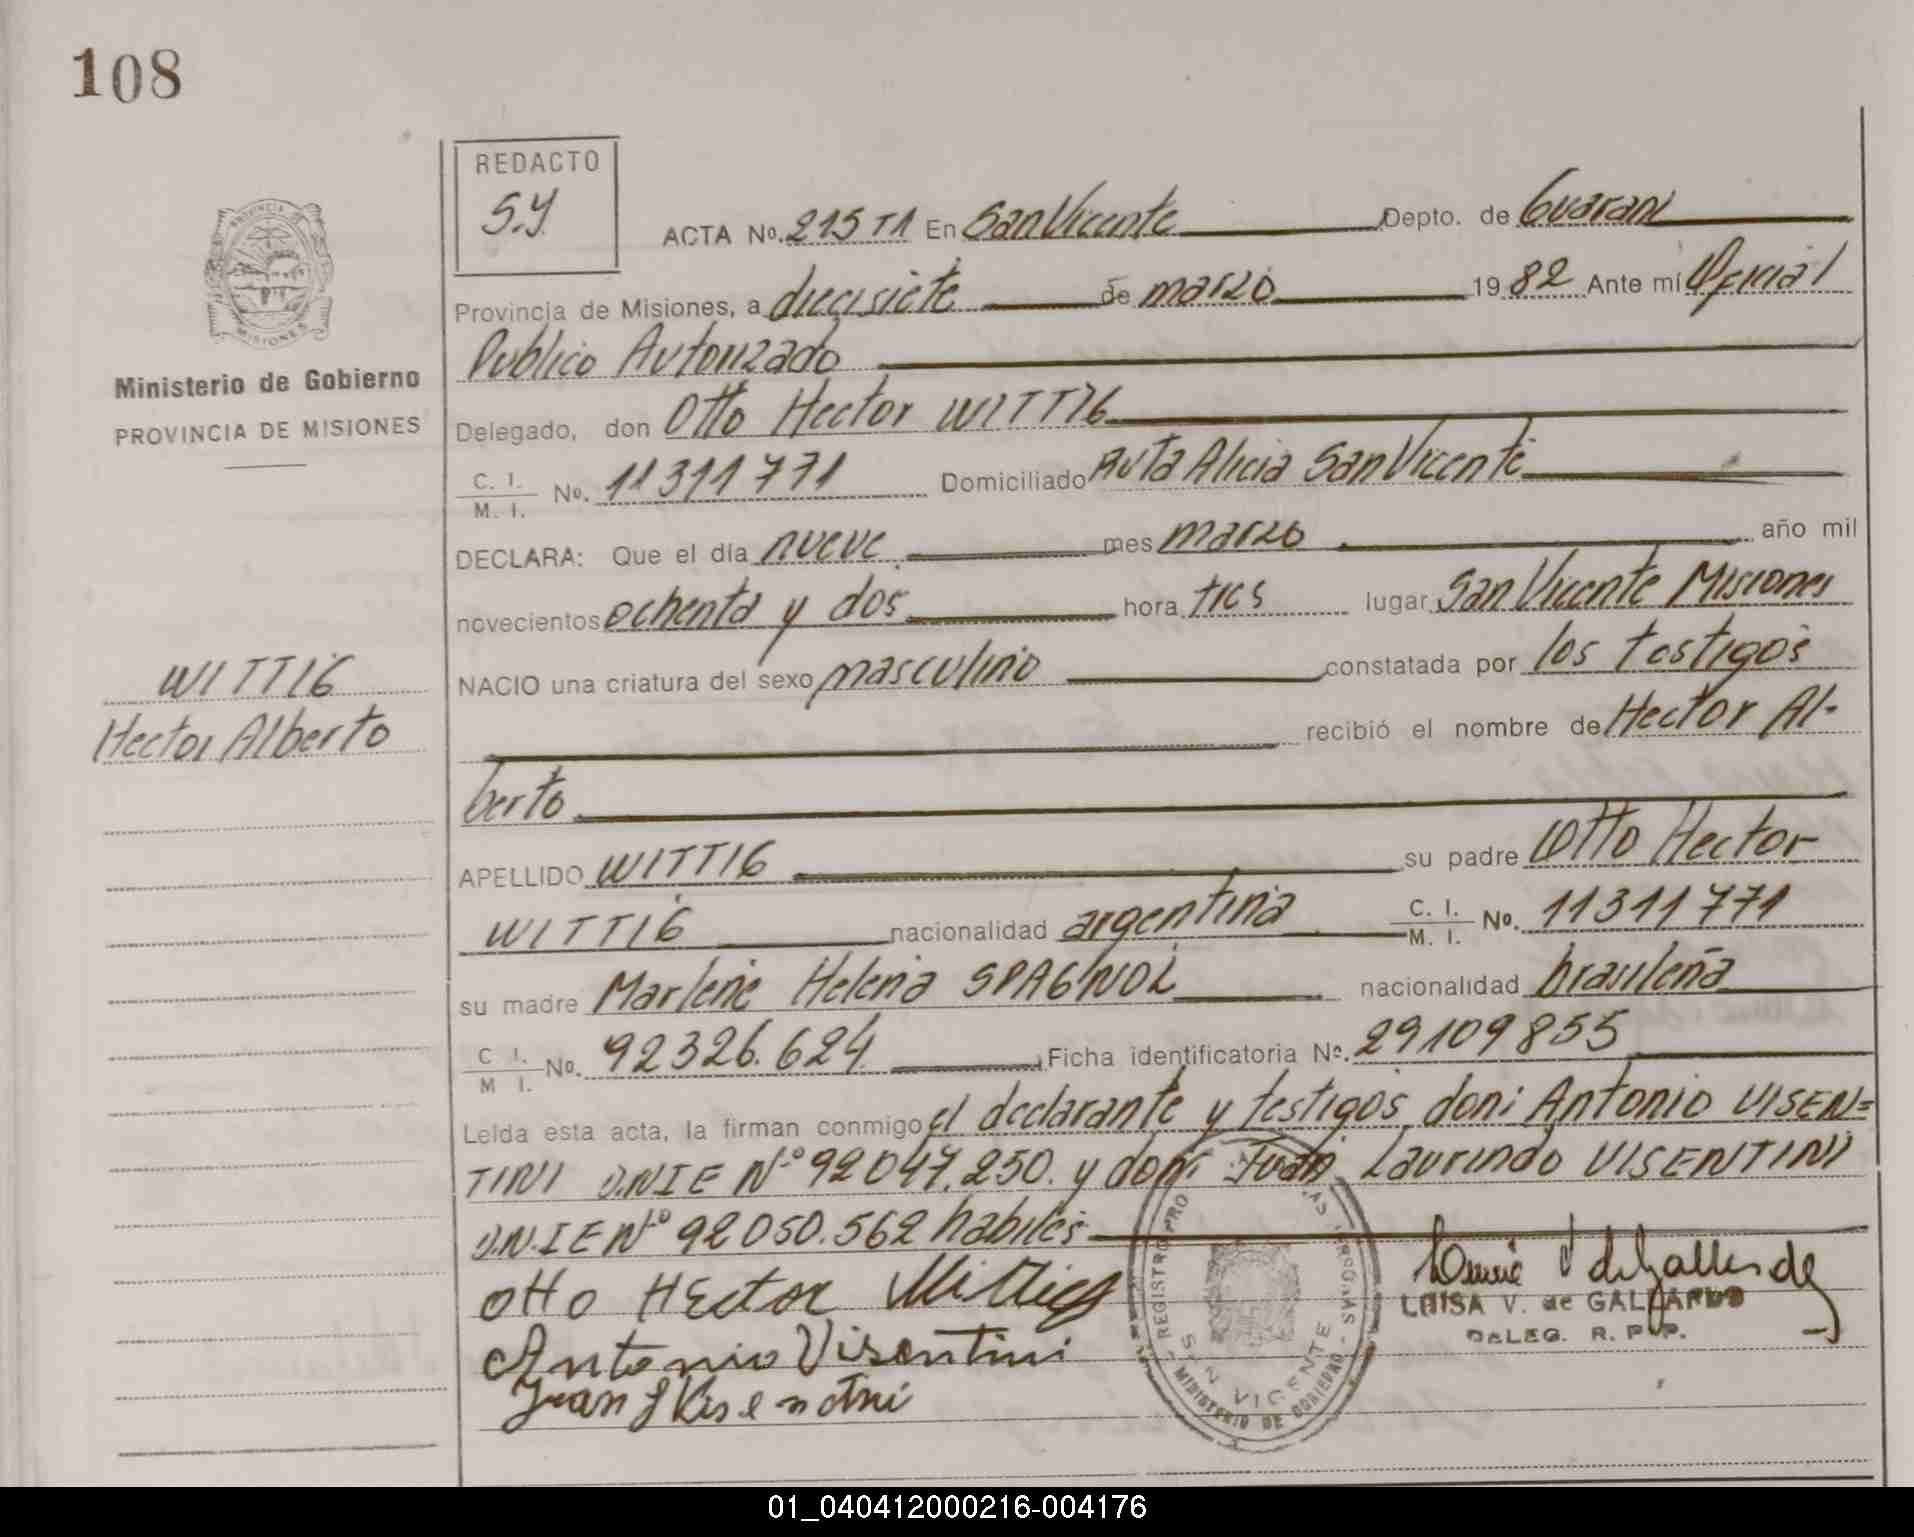 108
REDACTO
S.Y.
ACTA No. 215 T1 En San Vicente Depto. de Guaraní
Provincia de Misiones, a diecisiete de marzo 1982 Ante mí Oficial
Publico Autorizado
Ministerio de Gobierno
PROVINCIA DE MISIONES
Delegado, don Otto Hector WITTIG
C. I. / M. I. No. 11311771 Domiciliado Ruta Alicia San Vicente
DECLARA: Que el día nueve mes marzo año mil
novecientos ochenta y dos hora tres lugar San Vicente Misiones
NACIO una criatura del sexo masculino constatada por los testigos
WITTIG
Hector Alberto
recibió el nombre de Hector Al-
berto
APELLIDO WITTIG su padre Otto Hector
WITTIG nacionalidad argentina C. I. / M. I. No. 11311771
su madre Marlene Helena SPAGNOL nacionalidad brasileña
C I. / M I. No. 92326.624 Ficha identificatoria No. 29109855
Leída esta acta, la firman conmigo el declarante y testigos don: Antonio VISEN=
TINI D.N.I E Nº 92047.250. y don: Juan Laurindo VISENTINI
D.N.I E Nº 92050.562 habiles
Otto Hector Wittig
Antonio Visentini
Juan L Visentini
LUISA V. de GALLARDO
DELEG. R. P. P.
REGISTRO PRO
AS PERSONAS
SAN VICENTE
MINISTERIO DE GOBIERNO
01_040412000216-004176